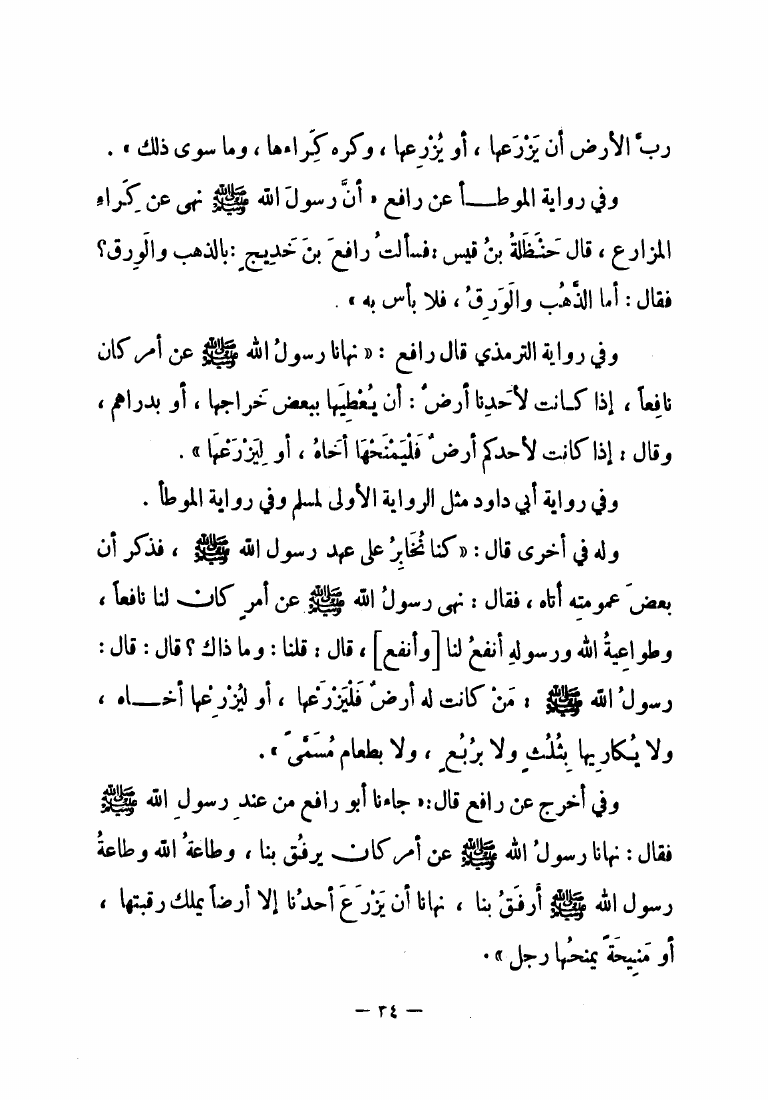 ربَّ الأرض أن يَزْرَعها ، أو يُزْرِعها ، وكره كِراءها ، وما سوى ذلك » .
وفي رواية الموطـــأ عن رافع « أنَّ رسولَ الله ﷺ نهى عن كِراءِ
المزارع ، قال حَنْظَلةُ بنُ قيس : فسألتُ رافعَ بنَ خَدِيجٍ : بالذهب والوَرِق؟
فقال : أما الذَّهبُ والوَرِقُ ، فلا بأس به » .
وفي رواية الترمذي قال رافع : « نهانا رسولُ الله ﷺ عن أمر كان
نافِعاً ، إذا كـانت لأحَدِنا أرضٌ : أن يُعْطِيَها ببعض خَراجها ، أو بدراهم ،
وقال : إذا كانت لأحدكم أرضٌ فَلْيَمْنَحْهَا أخاهُ ، أو لِيَزْرَعْهَا » .
وفي رواية أبي داود مثل الرواية الأولى لمسلم وفي رواية الموطأ .
وله في أخرى قال : « كنا نُخَابِرُ على عهد رسول الله ﷺ ، فذكر أن
بعضَ عمومتِه أتاه ، فقال : نهى رسولُ الله ﷺ عن أمرٍ كان لنا نافعاً ،
وطواعِيةُ الله ورسولِهِ أنفعُ لنا [وأنفع] ، قال : قلنا : وما ذاك ؟ قال : قال :
رسولُ الله ﷺ : مَنْ كانت له أرضٌ فَلْيَزْرَعْها ، أو لِيُزْرِعْها أخـــاه ،
ولا يُكارِيها بِثُلُثٍ ولا برُبُعٍ ، ولا بطعام مُسَمَّىً » .
وفي أخرج عن رافع قال: « جاءنا أبو رافع من عندِ رسولِ الله ﷺ
فقال : نهانا رسولُ الله ﷺ عن أمر كان يرفُق بنا ، وطاعةُ الله وطاعةُ
رسول الله ﷺ أرفَقُ بنا ، نهانا أن يَزْرَعَ أحدُنا إلا أرضاً يملك رقبتها ،
أو مَنِيحَةً يمنحُها رجل » .
— ٣٤ —